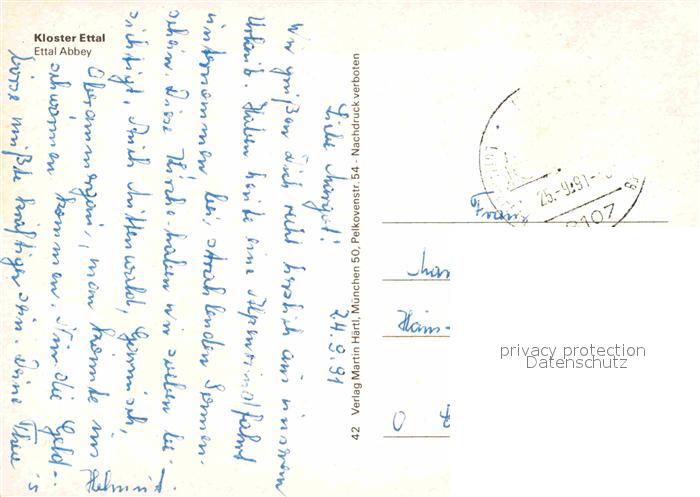 Kloster Ettal
Ettal Abbey
Liebe Margot! 24.9.91
Wir grüßen Dich recht herzlich aus unserem
Urlaub. Haben heute eine Alpenrundfahrt
unternommen bei strahlenden Sonnen-
schein. Diese Kirche haben wir soeben be-
sichtigt. Auch Mittenwald, Garmisch,
Oberammergau, man könnte ins
schwärmen kommen. Nur die Geld-
börse müßte kräftiger sein. Deine
Helmut
42 Verlag Martin Härtl, München 50, Pelkovenstr. 54 - Nachdruck verboten
25.-9.91
8107
privacy protection
Datenschutz